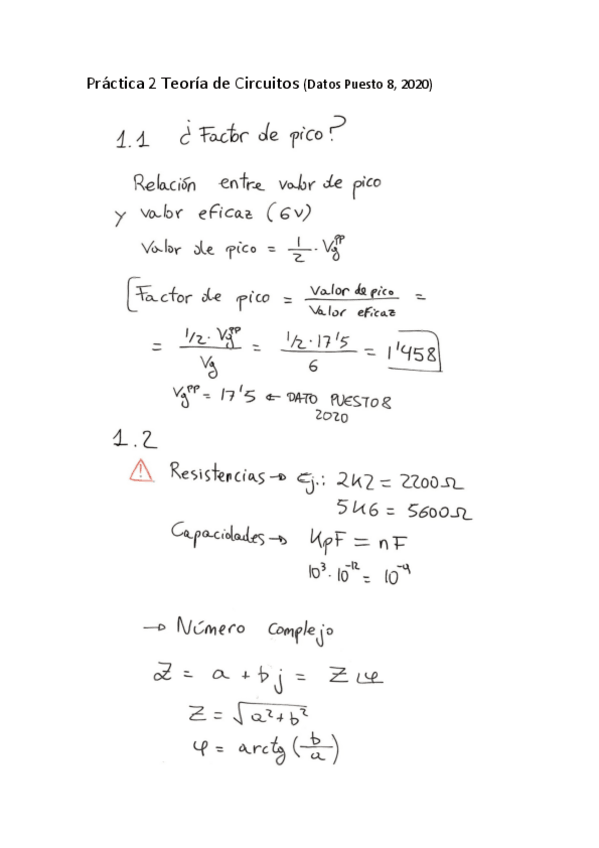 Práctica 2 Teoría de Circuitos (Datos Puesto 8, 2020)
1.1 ¿Factor de pico?
Relación entre valor de pico
y valor eficaz (6v)
Valor de pico = 1/2 · Vg^pp
[Factor de pico = Valor de pico / Valor eficaz =
= 1/2 · Vg^pp / Vg = 1/2 · 17'5 / 6 = 1'458
Vg^pp = 17'5 ← DATO PUESTO 8
2020
1.2
⚠ Resistencias → Ej.: 2K2 = 2200Ω
5K6 = 5600Ω
Capacidades → KpF = nF
10³ · 10⁻¹² = 10⁻⁹
→ Número complejo
Z = a + bj = Z∠φ
Z = √(a² + b²)
φ = arctg (b/a)